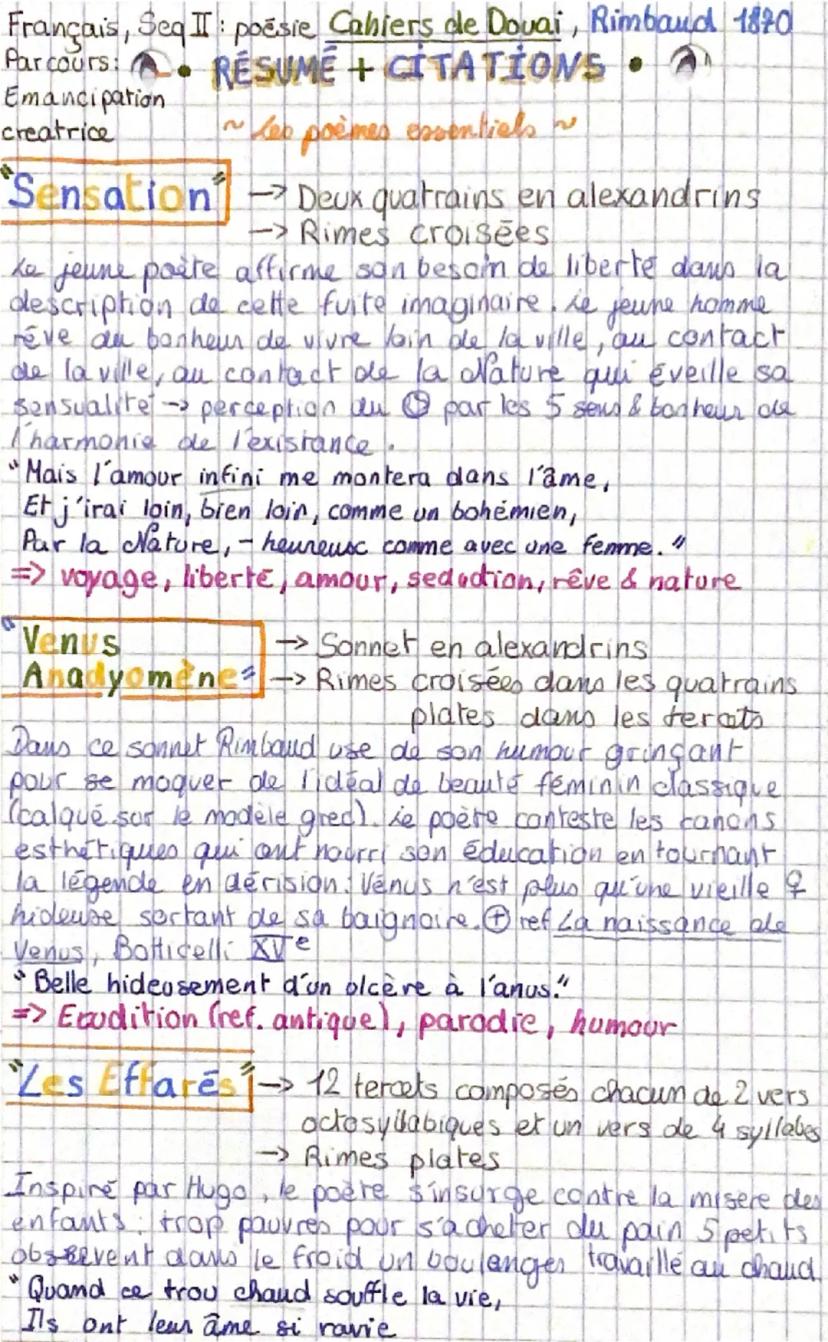 Français, Seq II : poésie Cahiers de Douai, Rimbaud 1870
Parcours : • RÉSUMÉ + CITATIONS •
Emancipation
creatrice ~ Les poèmes essentiels ~
"Sensation" -> Deux quatrains en alexandrins
-> Rimes croisées
Le jeune poète affirme son besoin de liberté dans la
description de cette fuite imaginaire. Le jeune homme
rêve du bonheur de vivre loin de la ville, au contact
de la ville, au contact de la Nature qui éveille sa
sensualité -> perception du par les 5 sens & bonheur de
l'harmonie de l'existance.
"Mais l'amour infini me montera dans l'âme,
Et j'irai loin, bien loin, comme un bohémien,
Par la Nature, - heureux comme avec une femme."
=> voyage, liberté, amour, seduction, rêve & nature
"Venus -> Sonnet en alexandrins
Anadyomène" -> Rimes croisées dans les quatrains
plates dans les tercets
Dans ce sonnet Rimbaud use de son humour grinçant
pour se moquer de l'idéal de beauté féminin classique
(calqué sur le modèle grec). Le poète conteste les canons
esthétiques qui ont nourri son éducation en tournant
la légende en dérision : Vénus n'est plus qu'une vieille ♀
hideuse sortant de sa baignoire. ⊕ ref La naissance de
Venus, Botticelli XVe
"Belle hideusement d'un olcère à l'anus."
=> Erudition (ref. antique), parodie, humour
"Les Effarés" -> 12 tercets composés chacun de 2 vers
octosyllabiques et un vers de 4 syllabes
-> Rimes plates
Inspiré par Hugo, le poète s'insurge contre la misère des
enfants : trop pauvres pour s'acheter du pain 5 petits
observent dans le froid un boulanger travaillé au chaud.
"Quand ce trou chaud souffle la vie,
Ils ont leur âme si ravie